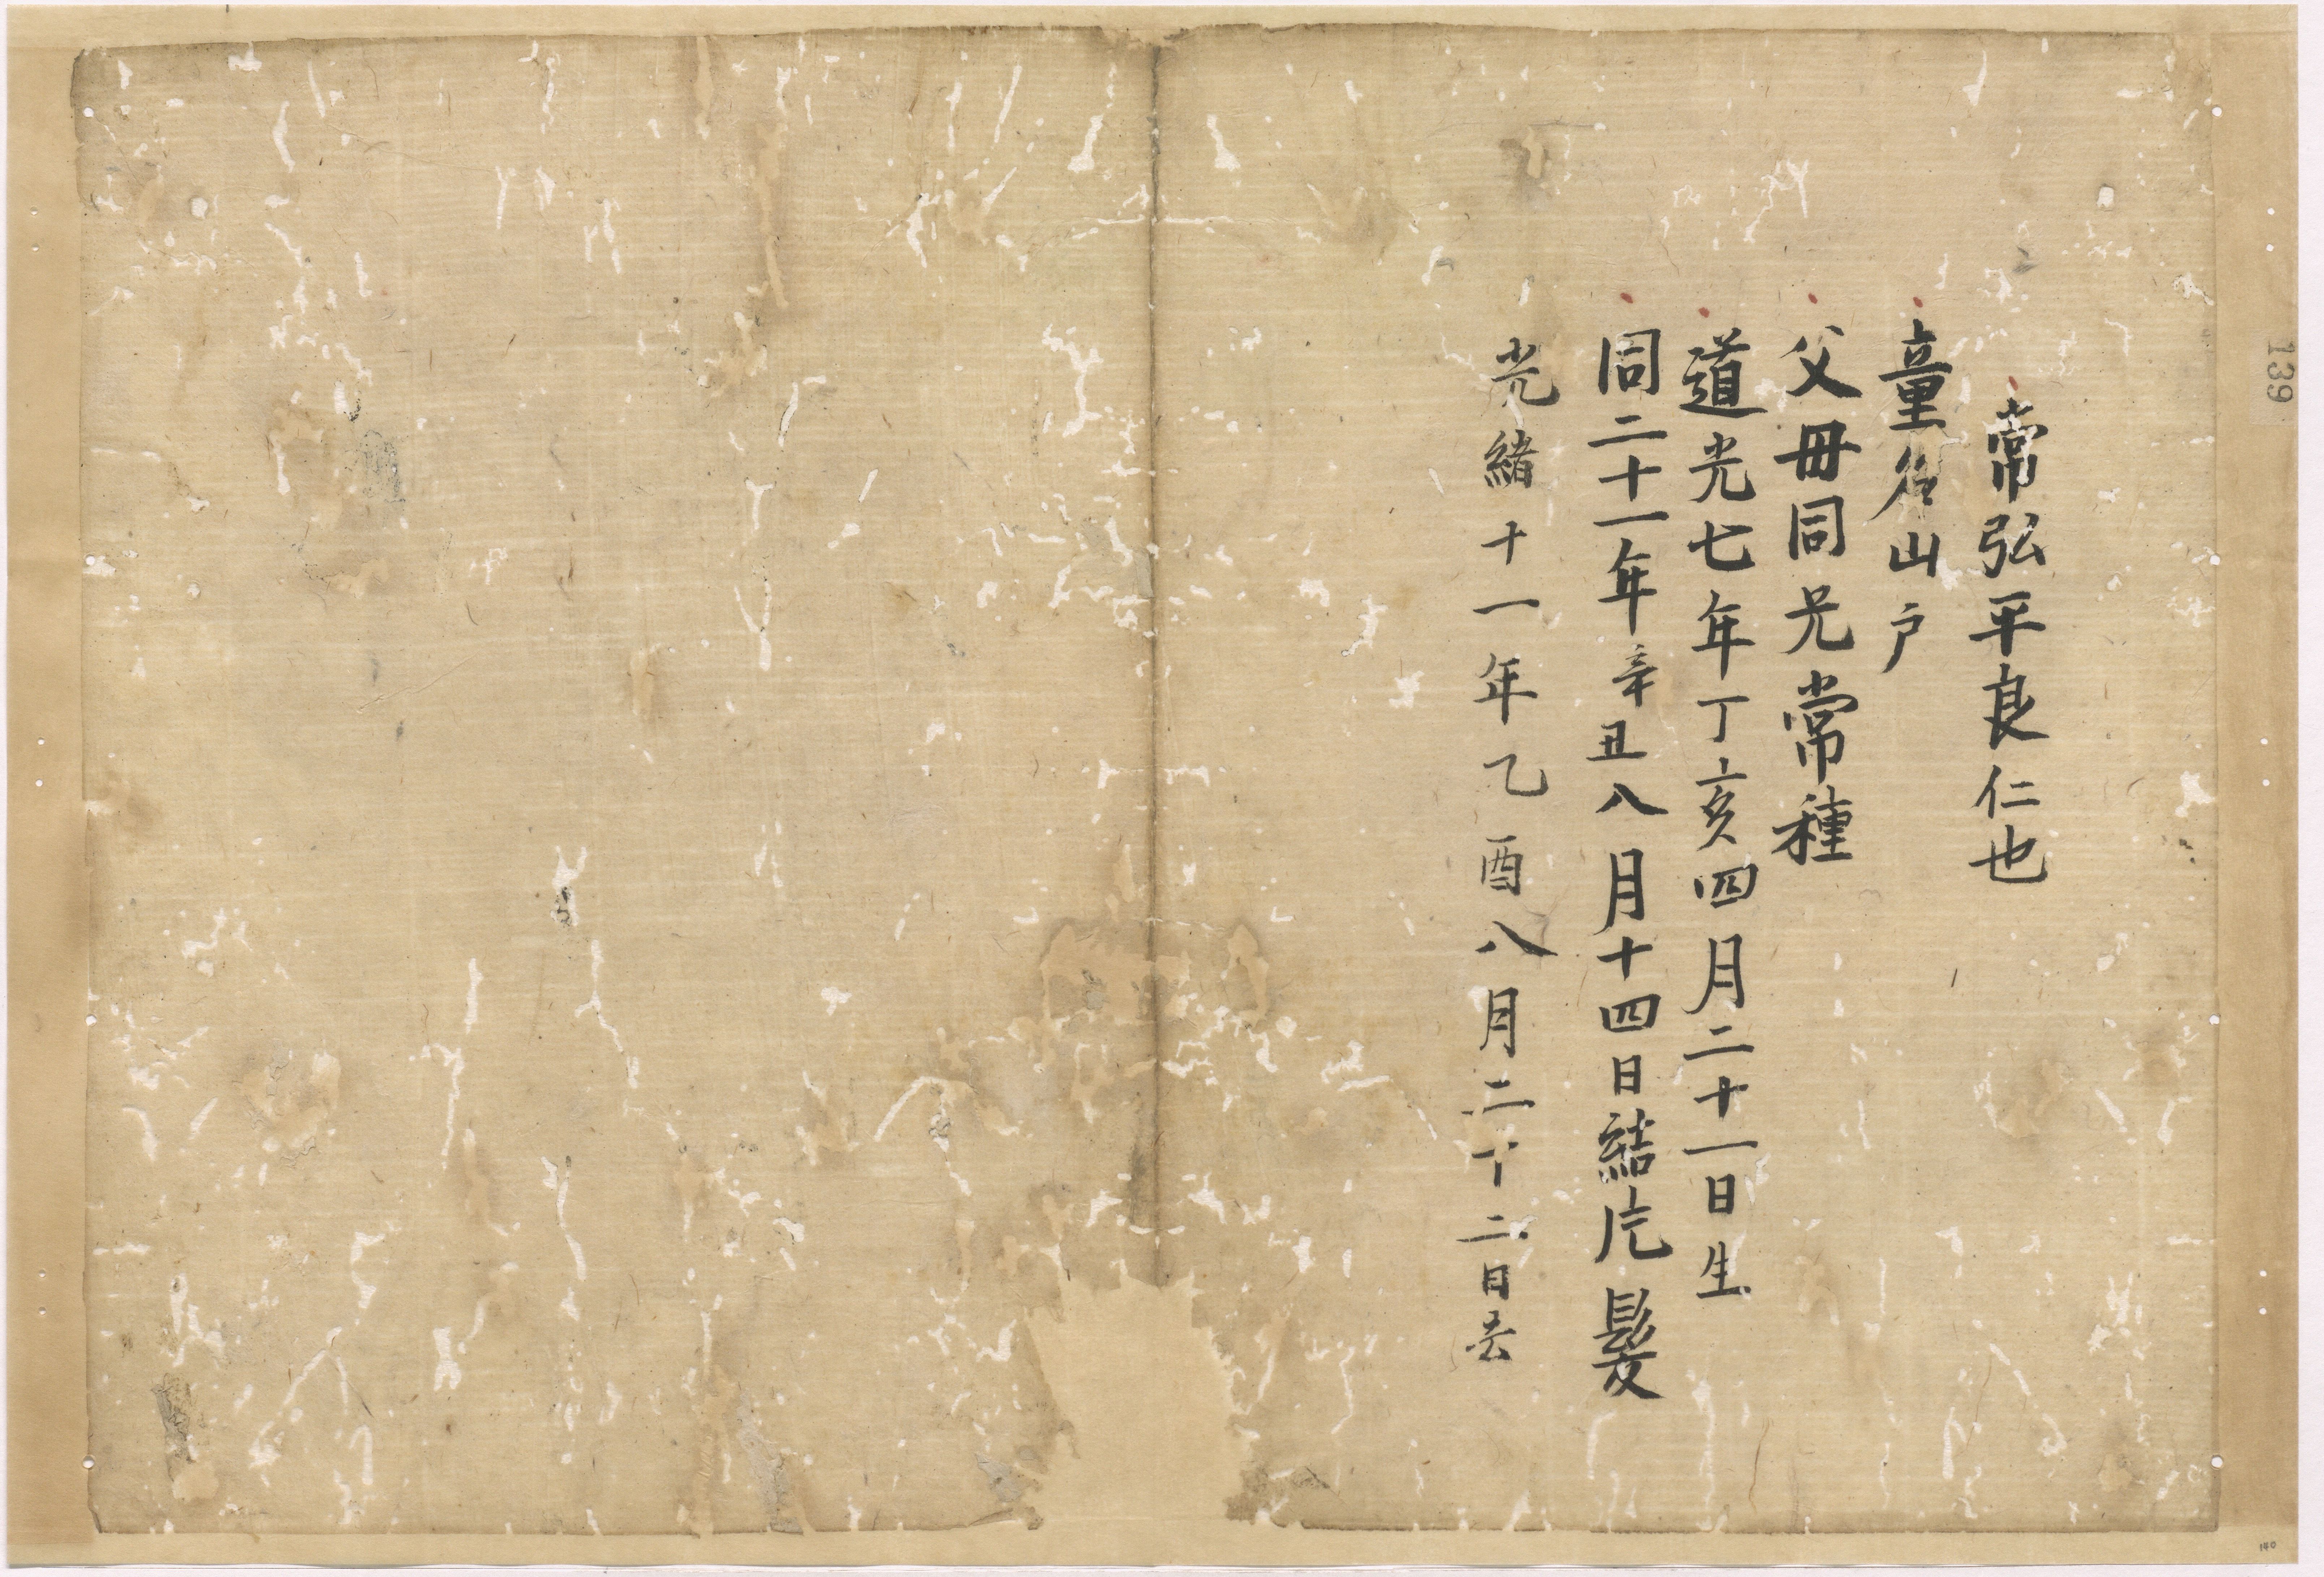 常弘平良仁也
童名山戸
父毌同兄常種
道光七年丁亥四月二十一日生
同二十一年辛丑八月十四日結片髪
光緒十一年乙酉八月二十二日去
139
140